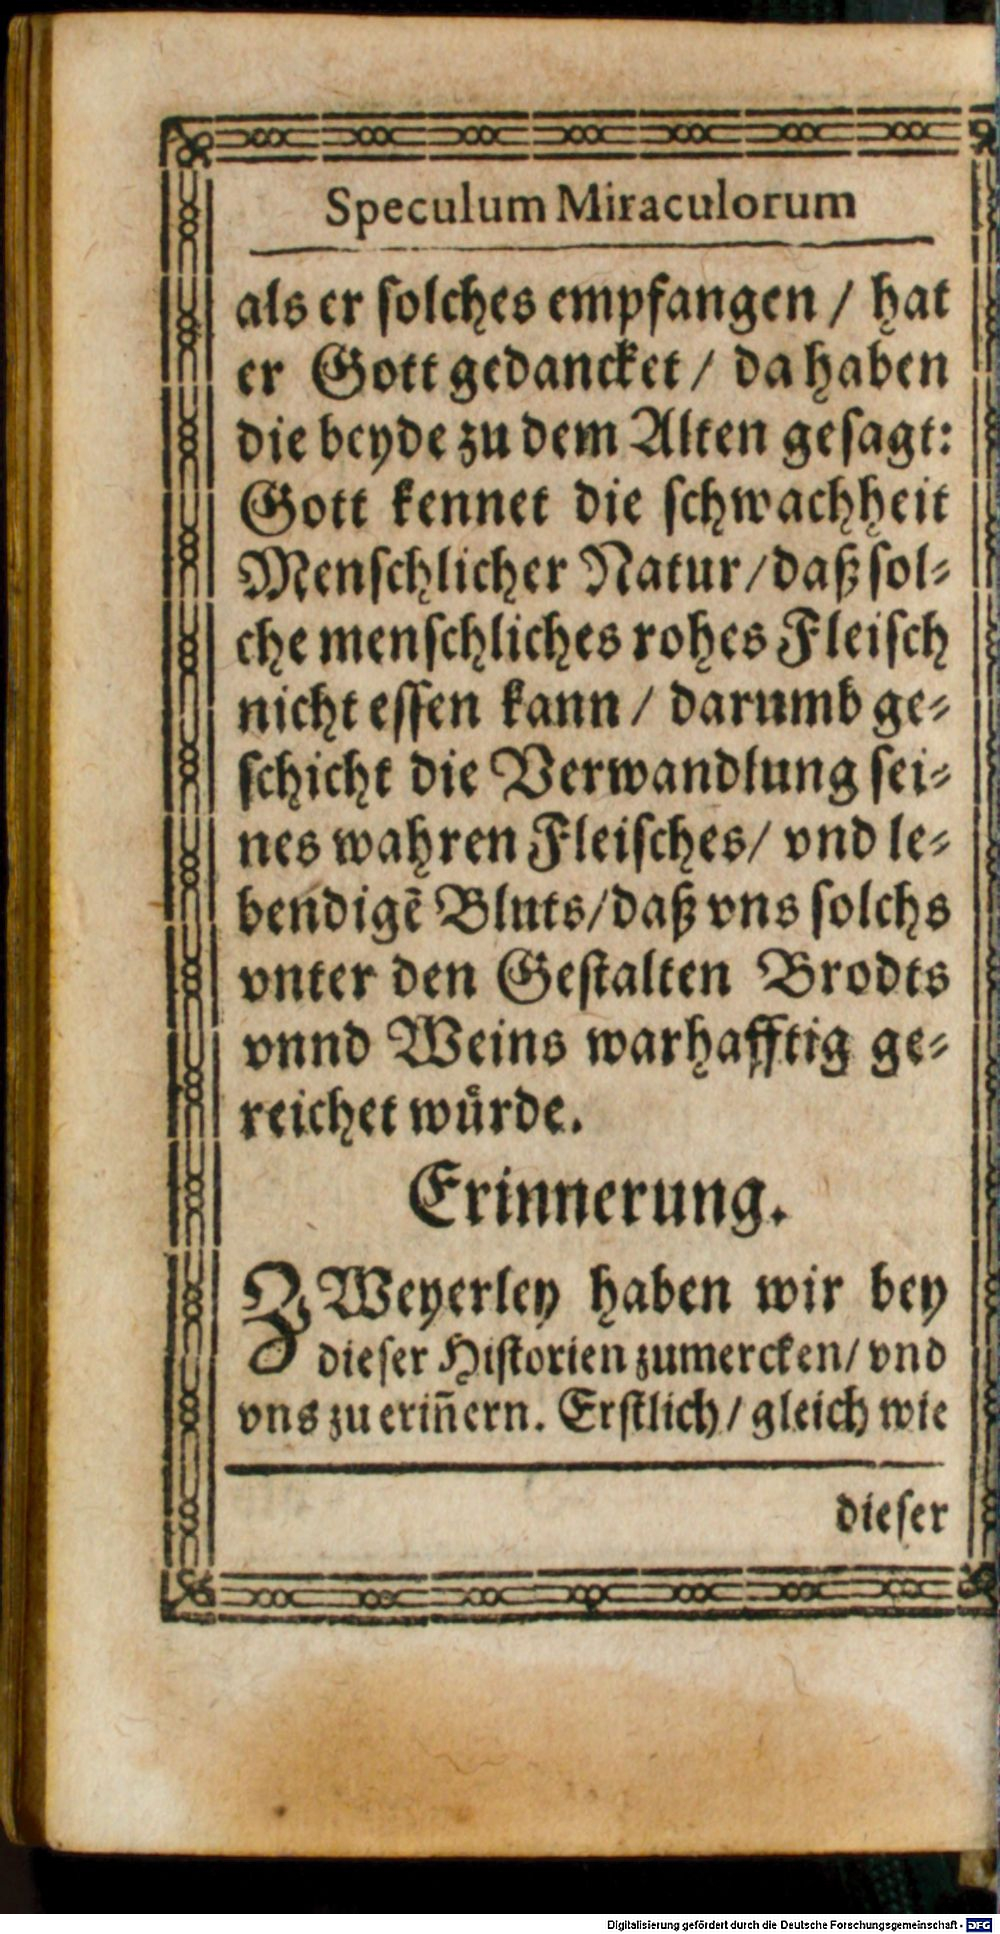 Speculum Miraculorum
als er ſolches empfangen / hat
er Gott gedancket / da haben
die beyde zu dem Alten geſagt:
Gott kennet die ſchwachheit
Menſchlicher Natur / daß ſol⸗
che menſchliches rohes Fleiſch
nicht eſſen kann / darumb ge⸗
ſchicht die Verwandlung ſei⸗
nes wahren Fleiſches / vnd le⸗
bendigẽ Bluts / daß vns ſolchs
vnter den Geſtalten Brodts
vnnd Weins warhafftig ge⸗
reichet wuͤrde.
Erinnerung.
ZWeyerley haben wir bey
dieſer Hiſtorien zumercken / vnd
vns zu eriñern. Erſtlich / gleich wie
dieſer
Digitalisierung gefördert durch die Deutsche Forschungsgemeinschaft - DFG